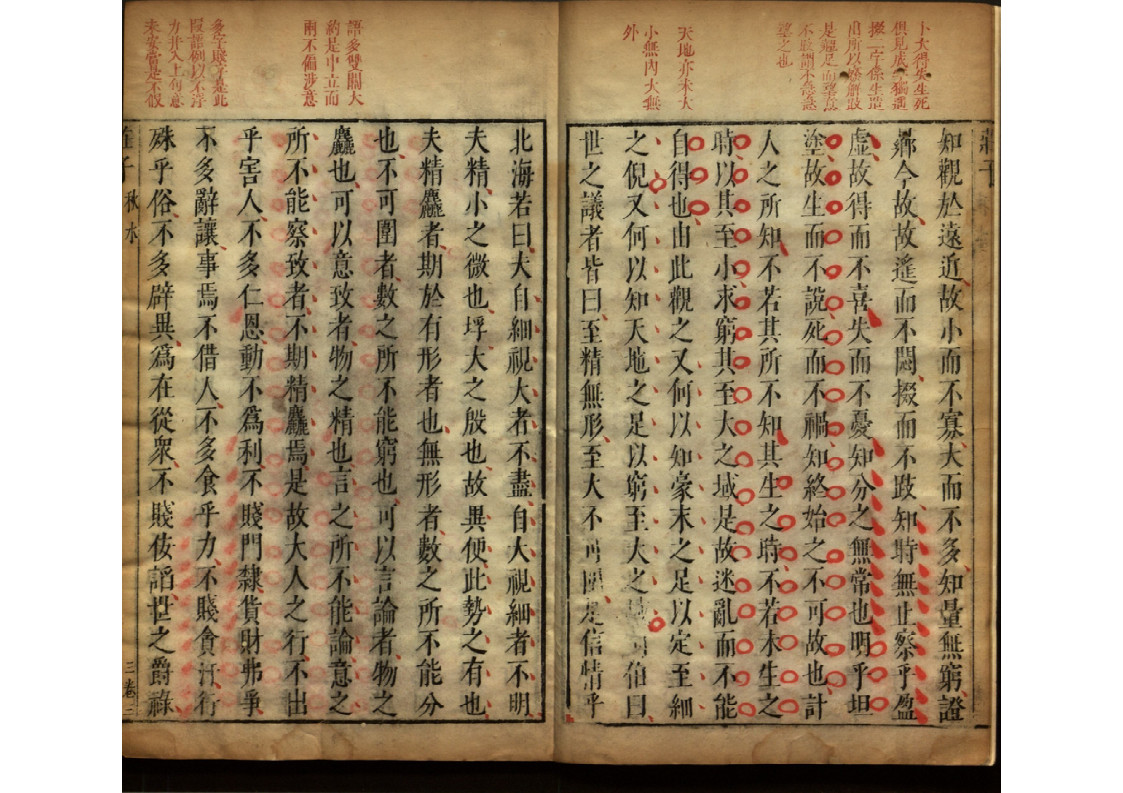 大得失生死
俱見成獨遙
掇二字係生
所以察解跂
是翹足而望意
不急急
望之也
天地亦未大
小無內大無
外
莊子
知觀於遠近故小而不寡大而不多知量無窮證
今故故遙而不悶掇而不跂知時無止察乎盈
虛故得而不喜失而不憂知分之無常也明乎坦
塗故生而不說死而不禍知終始之不可故也計
人之所知不若其所不知其生之時不若未生之
時以其至小求窮其至大之域是故迷亂而不能
自得也由此觀之又何以知豪末之足以定至細
之倪又何以知天地之足以窮至大之域河伯曰
世之議者皆曰至精無形至大不可圍是信情乎
語多雙關大
約是中立而
兩不偏涉意
多字賤字是此
段譯例以不浮
力并入上句意
未妥當是不假
北海若曰夫自細視大者不盡自大視細者不明
夫精小之微也垺大之殷也故異便此勢之有也
夫精麤者期於有形者也無形者數之所不能分
也不可圍者數之所不能窮也可以言論者物之
麤也可以意致者物之精也言之所不能論意之
所不能察致者不期精麤焉是故大人之行不出
乎害人不多仁恩動不為利不賤門隸貨財弗爭
不多辭讓事焉不借人不多食乎力不賤貪汙行
殊乎俗不多辟異為在從眾不賤佞諂世之爵祿
莊子 秋水 三卷